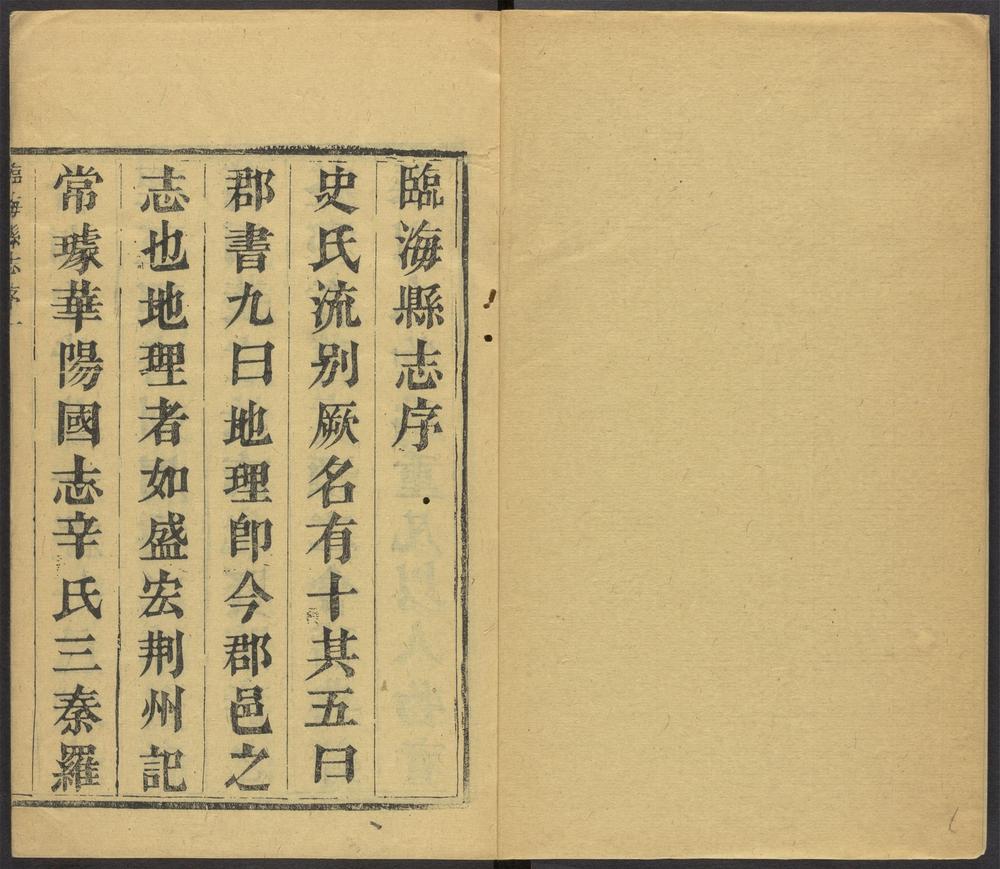 臨海縣志序
史氏流别厥名有十其五曰
郡書九曰地理卽今郡邑之
志也地理者如盛宏荆州記
常璩華陽國志辛氏三秦羅
臨海縣志序一